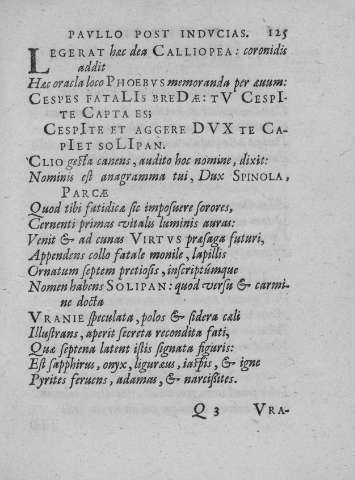 PAVLLO POST INDVCIAS. 125
LEGERAT hæc dea CALLIOPEA: coronidis
addit
Hæc oracla loco PHOEBVS memoranda per æuum:
CESPES FATALIS BREDÆ: TV CESPI-
TE CAPTA ES;
CESPITE ET AGGERE DVX TE CA-
PIET SOLIPAN.
CLIO gesta canens, audito hoc nomine, dixit:
Nominis est anagramma tui, DUX SPINOLA,
PARCÆ
Quod tibi fatidicæ sic imposuere sorores,
Cernenti primas vitalis luminis auras:
Venit & ad cunas VIRTVS præsaga futuri,
Appendens collo fatale monile, lapillis
Ornatum septem pretiosis, inscriptúmque
Nomen habens SOLIPAN: quod versu & carmi-
ne docta
VRANIE speculata, polos & sidera cæli
Illustrans, aperit secreta recondita fati,
Quæ septena latent istis signata figuris:
Est sapphirus, onyx, liguræus, iaspis, & igne
Pyrites feruens, adamas, & narcissites.
Q 3 VRA-